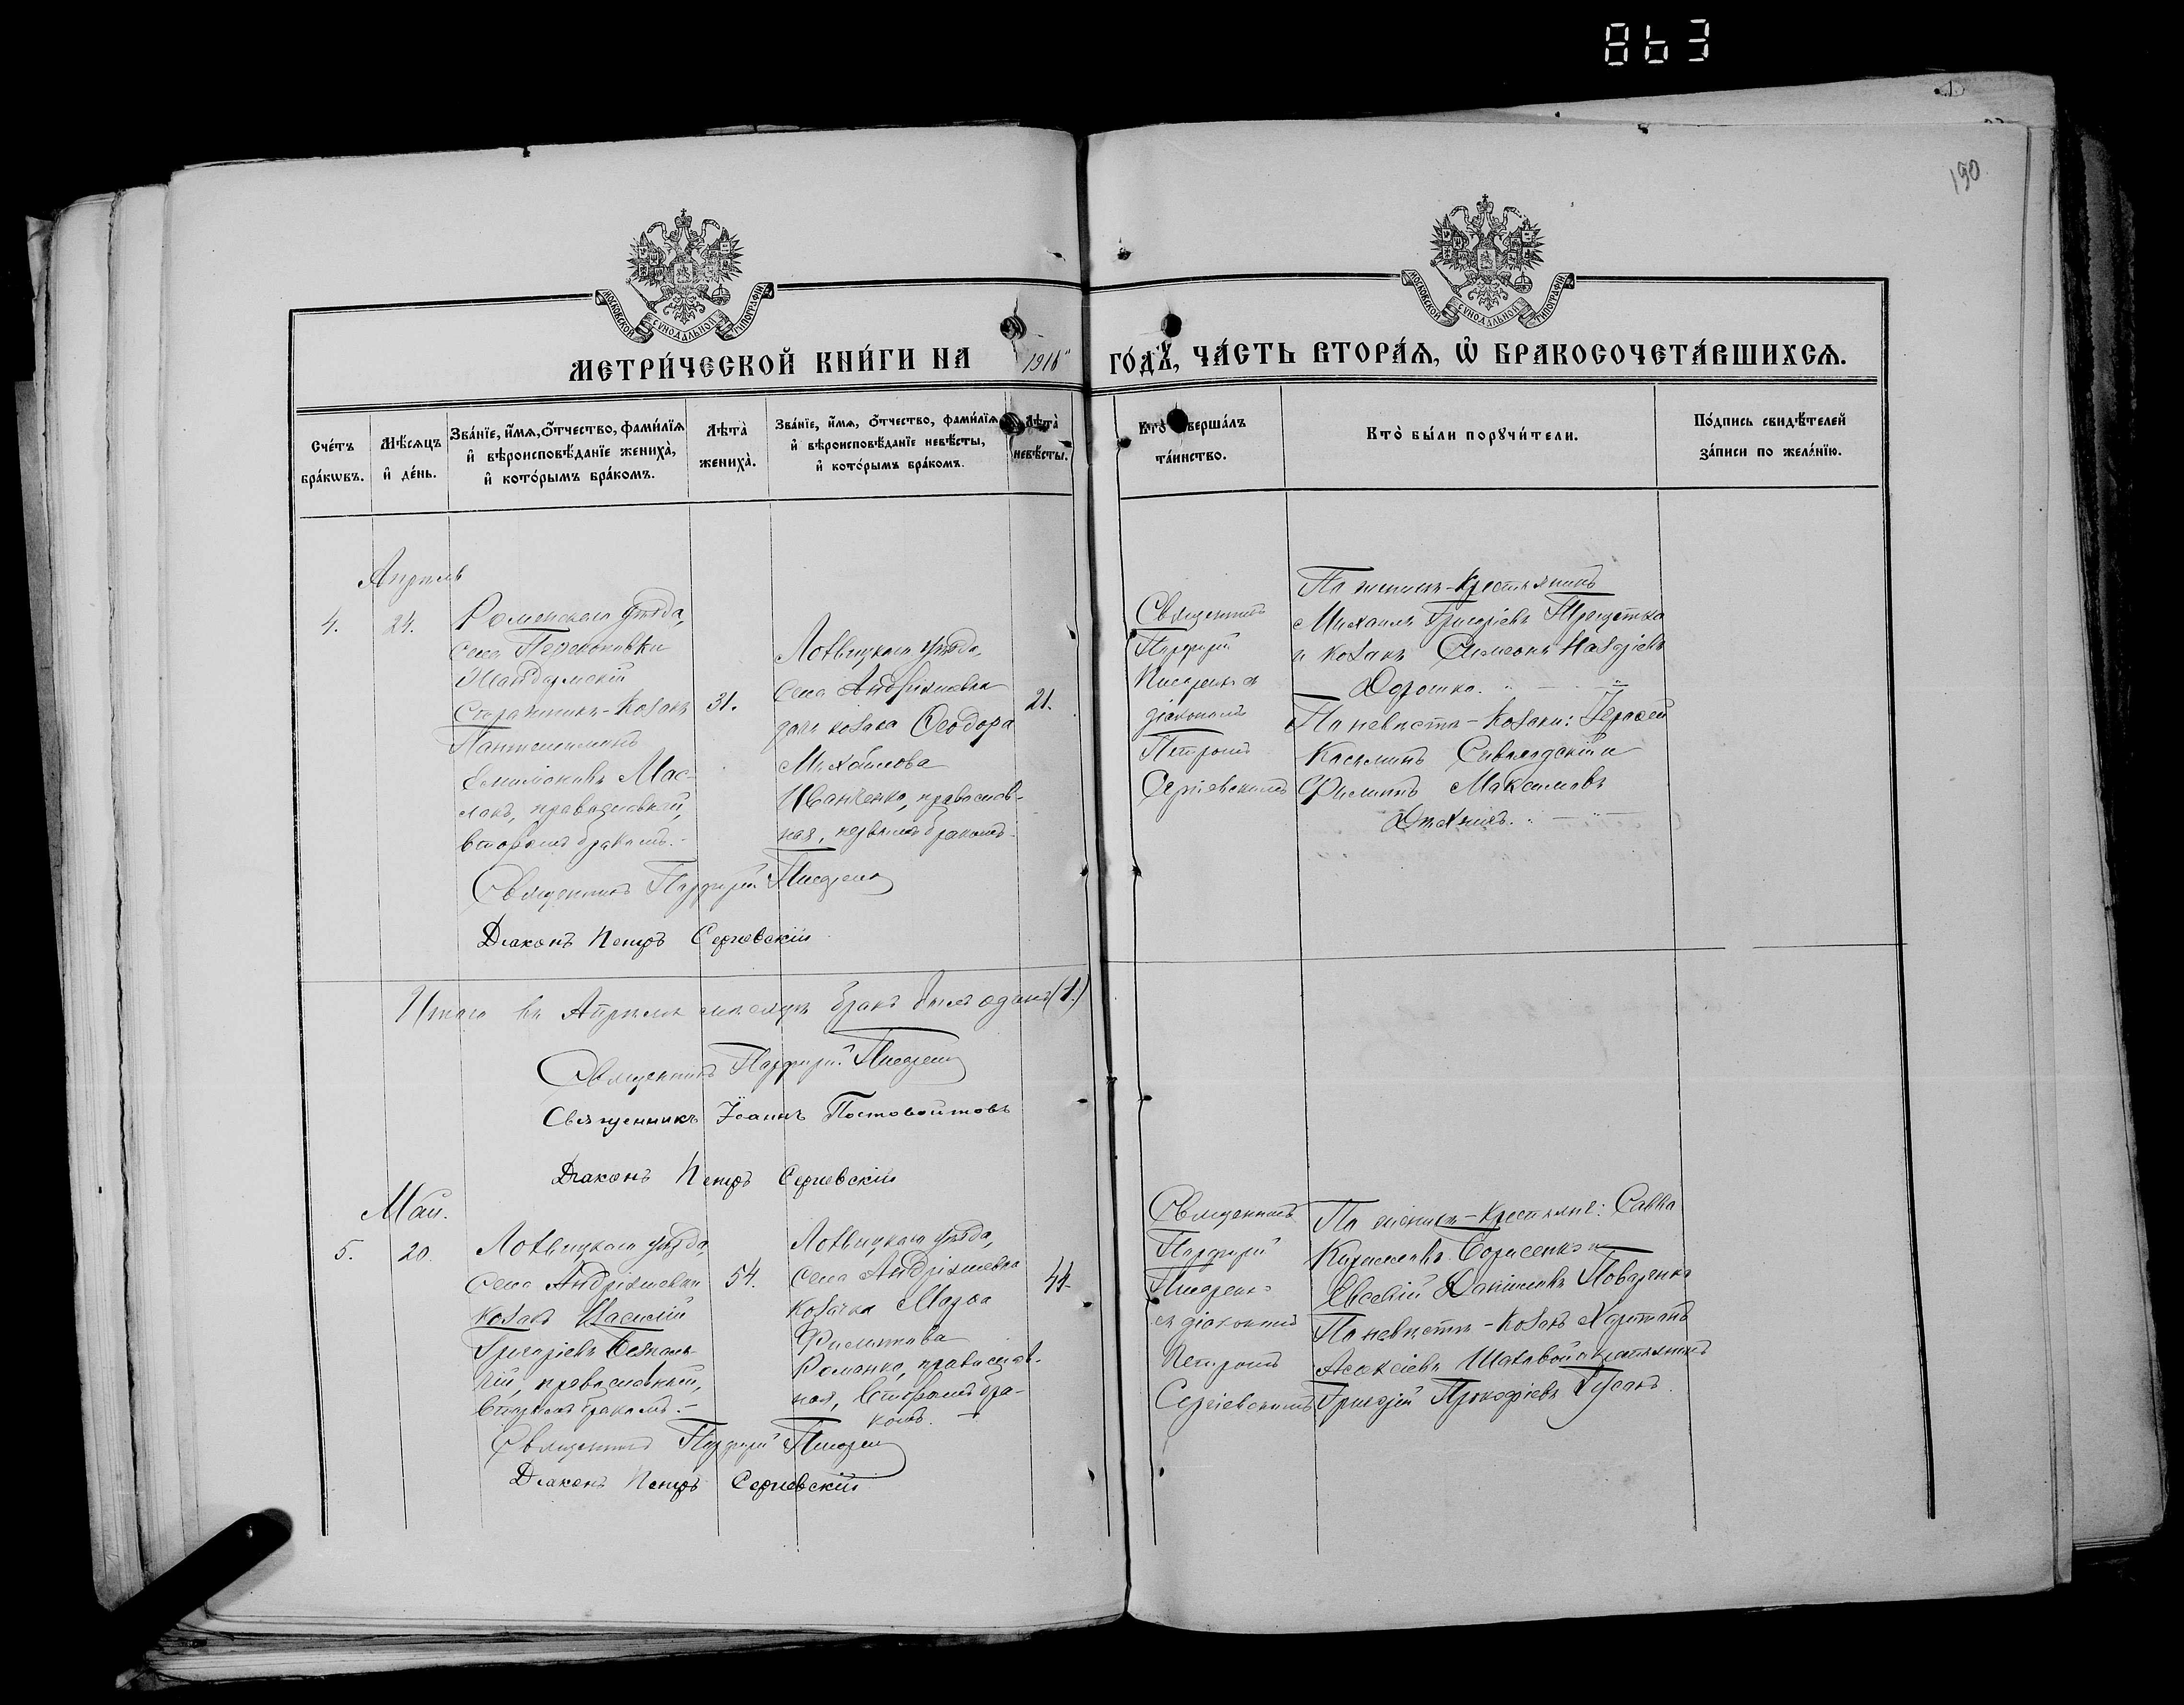 863
190
МОСКОВСКОЙ СѴНОДАЛЬНОЙ ТИПОГРАФІИ
МОСКОВСКОЙ СѴНОДАЛЬНОЙ ТИПОГРАФІИ
МЕТРИ́ЧЕСКОЙ КНИ́ГИ НА 1916 ГО́ДЪ, ЧА́СТЬ ВТОРА́Я, Ѽ БРАКОСОЧЕТА́ВШИХСЯ.
Сче́тъ бра́кѡвъ.
Мѣ́сяцъ и҆ де́нь.
Зва́нїе, и҆́мя, ѻ҆́тчество, фами́лїя и҆ вѣроисповѣ́данїе жениха̀, и҆ кото́рымъ бра́комъ.
Лѣта̀ жениха̀.
Зва́нїе, и҆́мя, ѻ҆́тчество, фами́лїя и҆ вѣроисповѣ́данїе невѣ́сты, и҆ кото́рымъ бра́комъ.
Лѣта̀ невѣ́сты.
Кто̀ соверша́лъ та́инство.
Кто̀ бы́ли порꙋчи́тели.
По́дпись свидѣ́телей за́писи по жела́нїю.
Апрѣль
4.
24.
Роменскаго уѣзда,
села Перекоповки
Жандармскій
Стражникъ-Козакъ
Пантелеимонъ
Емиліановъ Мас-
лакъ, православный,
вторымъ бракомъ.-
31.
Лохвицкаго уѣзда,
села Андріяшевки
дочь козака Ѳеодора
Михайлова
Иванченко, православ-
ная, первымъ бракомъ.
21.
Священникъ
Парфирій
Писаренко съ
діакономъ
Петромъ
Сергіевскимъ
По женихѣ-Крестьянинъ
Михаилъ Григоріевъ Трощотка
и козакъ Симеонъ Назаріевъ
Дорошко.
По невѣстѣ-Козаки: Герасим
Касьминъ и
Филиппъ Максимовъ
Священникъ Парфирій Писаренко
Діаконъ Петръ Сергіевскій
Итого въ Апрѣлѣ мѣсяцѣ бракъ былъ одинъ (1.)
Священникъ Парфирій Писаренко
Священникъ Іоаннъ Постовойтовъ
Діаконъ Петръ Сергіевскій
Май.
5.
20.
Лохвицкаго уѣзда,
села Андріяшевки
козакъ Василій
Григоріевъ
православный,
вторымъ бракомъ.-
54.
Лохвицкаго уѣзда,
села Андріяшевка
козачка Марѳа
Филиппова
Романко, православ-
ная, вторымъ бра-
комъ.
44.
Священникъ
Парфирій
Писаренко
съ діакономъ
Петромъ
Сергіевскимъ
По женихѣ-Крестьяне: Савва
Кирилловъ Борисенко и
Евсевій Даніиловъ Поваренко
По невѣстѣ-Козакъ Харитонъ
Алексіевъ Шаховой и крестьянинъ
Григорій Прокофіевъ Гусакъ.
Священникъ Парфирій Писаренко
Діаконъ Петръ Сергіевскій